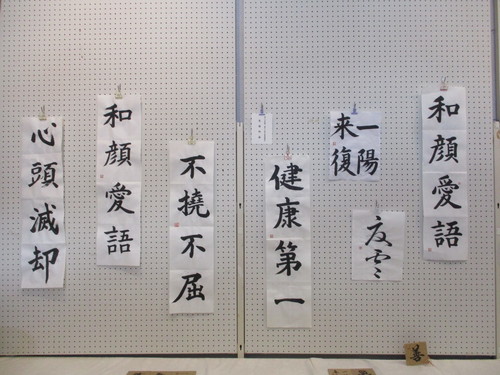 和顔愛語
一陽
来復
健康第一
不撓不屈
和顔愛語
心頭滅却
善